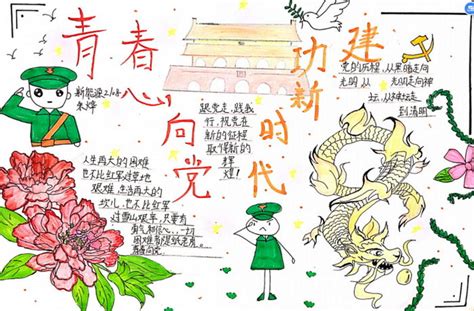 青春
心向党
建功新时代
新能源
朱烨
跟党走,践我
行,祝党在
新的征程
取得新的
辉
煌!
党的历程,从黑暗走向
光明 从 光明走向神
坛,从神坛走
到清明
人生再大的困难
也不比红军过草地
艰难,生活再大的
坎儿,也不比红军
过雪山艰辛,只要有
勇气和信心,一切
困难都是纸老虎。
青春向党